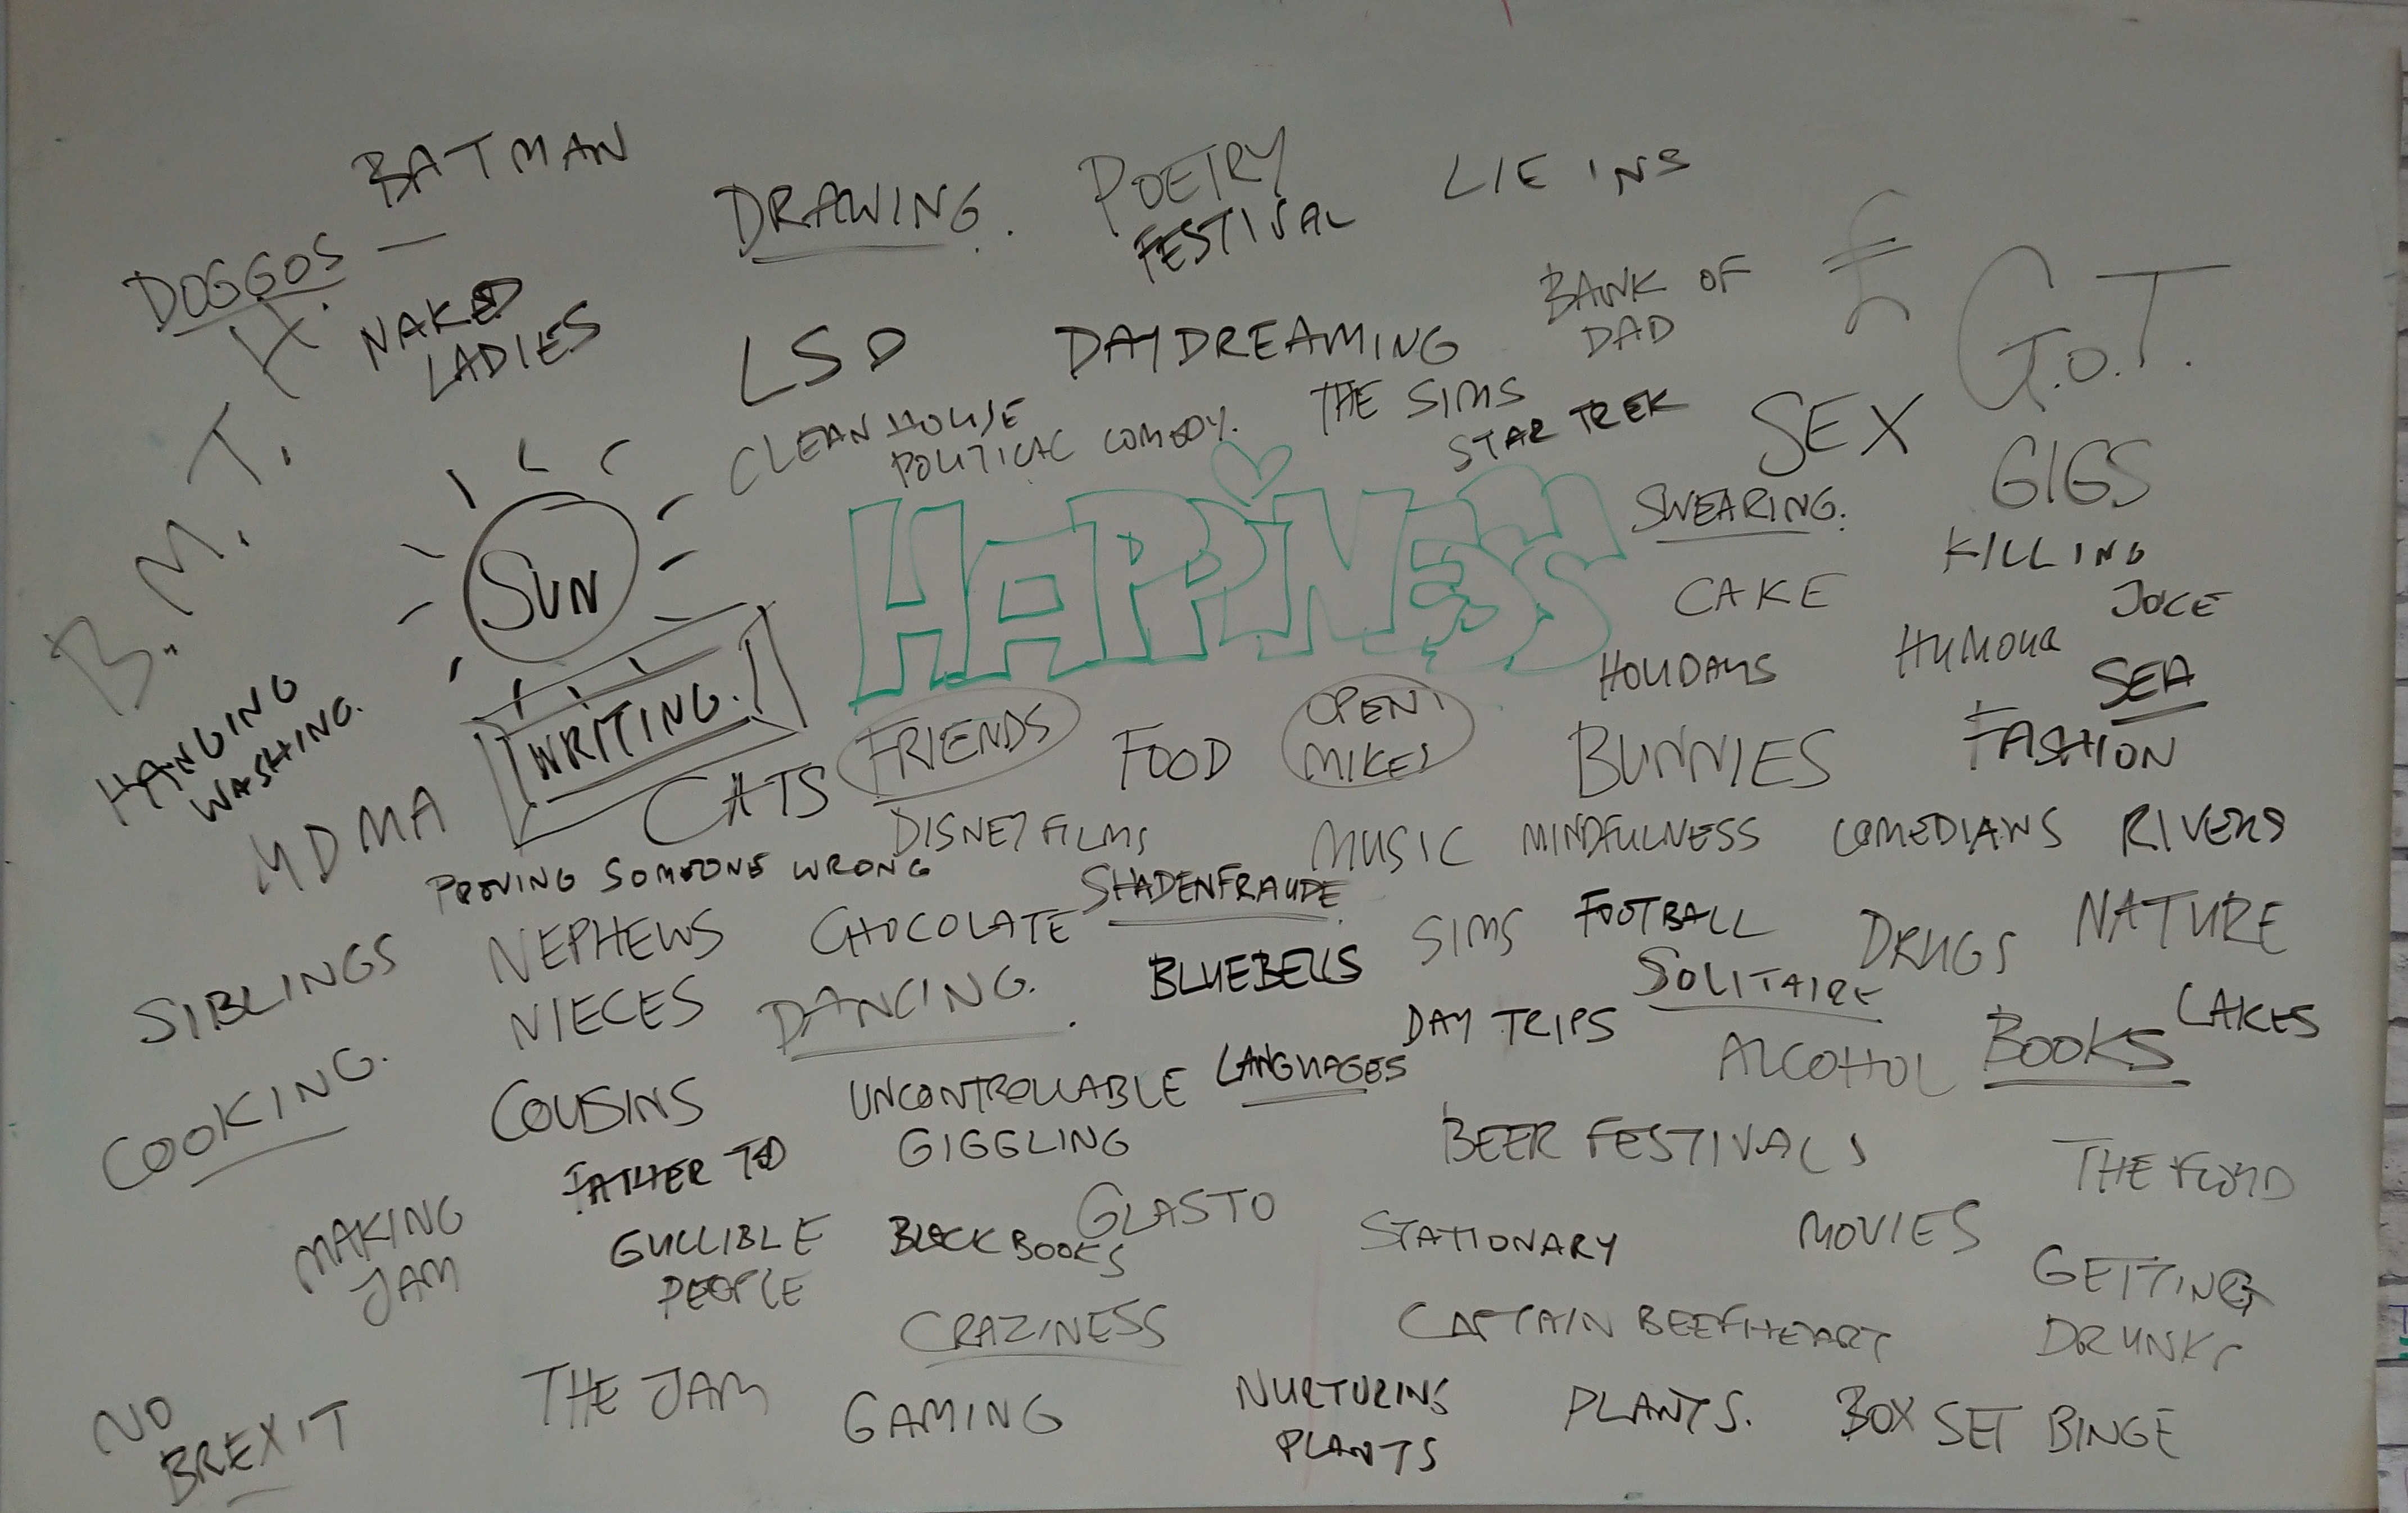 BATMAN
DRAWING.
POETRY
FESTIVAL
LIE INS
DOGGOS
NAKED
LADIES
LSD
DAYDREAMING
BANK OF
DAD
£
G.O.T.
B.M.T.H.
CLEAN HOUSE
POLITICAL COMEDY.
THE SIMS
STAR TREK
SEX
GIGS
SUN
HAPPINESS
SWEARING.
KILLING
JOKE
CAKE
HUMOUR
HOLIDAYS
SEA
HANGING
WASHING.
WRITING.
CATS
FRIENDS
FOOD
OPEN
MIKES
BUNNIES
FASHION
MDMA
DISNEY FILMS
MUSIC
MINDFULNESS
COMEDIANS
RIVERS
PROVING SOMEONE WRONG
SHADENFRAUDE
SIBLINGS
NEPHEWS
NIECES
CHOCOLATE
BLUEBELLS
SIMS
FOOTBALL
DRUGS
NATURE
DANCING.
SOLITAIRE
DAY TRIPS
LAKES
COOKING.
COUSINS
UNCONTROLLABLE
GIGGLING
LANGUAGES
ALCOHOL
BOOKS
FATHER TED
BEER FESTIVALS
THE FLOYD
MAKING
JAM
GULLIBLE
PEOPLE
BLACK BOOKS
GLASTO
STATIONARY
MOVIES
GETTING
DRUNK
CRAZINESS
CAPTAIN BEEFHEART
NO
BREXIT
THE JAM
GAMING
NURTURING
PLANTS
PLANTS.
BOX SET BINGE